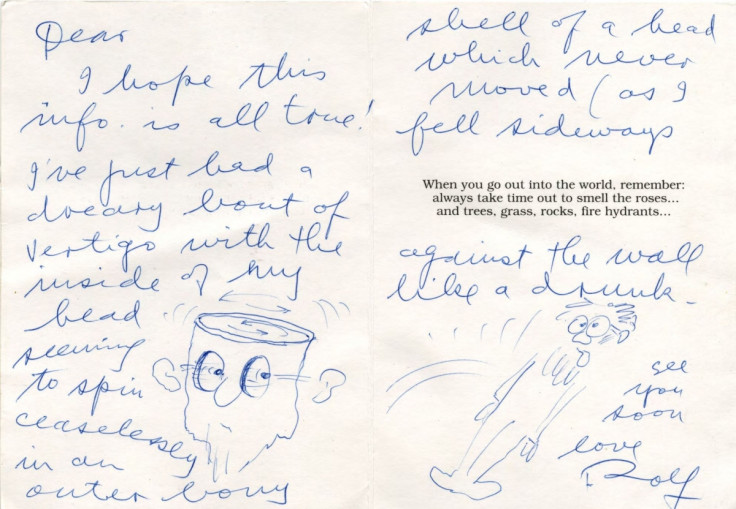 Dear
I hope this
info. is all true!
I've just had a
dreary bout of
vertigo with the
inside of my
head
seeming
to spin
ceaselessly
in an
outer bony
shell of a head
which never
moved (as I
fell sideways
When you go out into the world, remember:
always take time out to smell the roses...
and trees, grass, rocks, fire hydrants...
against the wall
like a drunk -
see
you
soon
love
Rolf